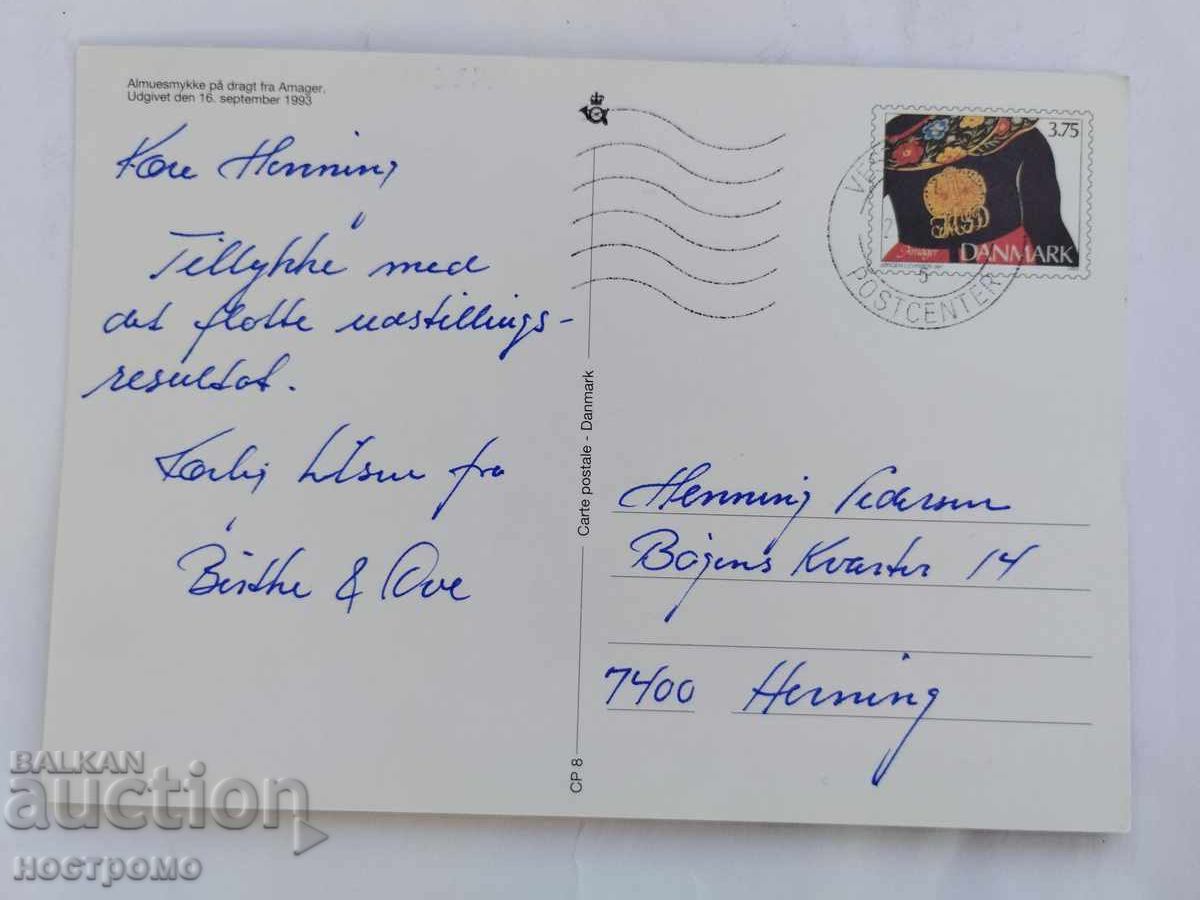 Almuesmykke på dragt fra Amager.
Udgivet den 16. september 1993
Kære Henning
Tillykke med
det flotte udstillings-
resultat.
Kærlig hilsen fra
Birthe & Ove
CP 8
Carte postale - Danmark
3.75
Amager
DANMARK
POSTCENTER
5
Henning Pedersen
Bøgens Kvarter 14
7400 Herning
BALKAN
auction
ностромо